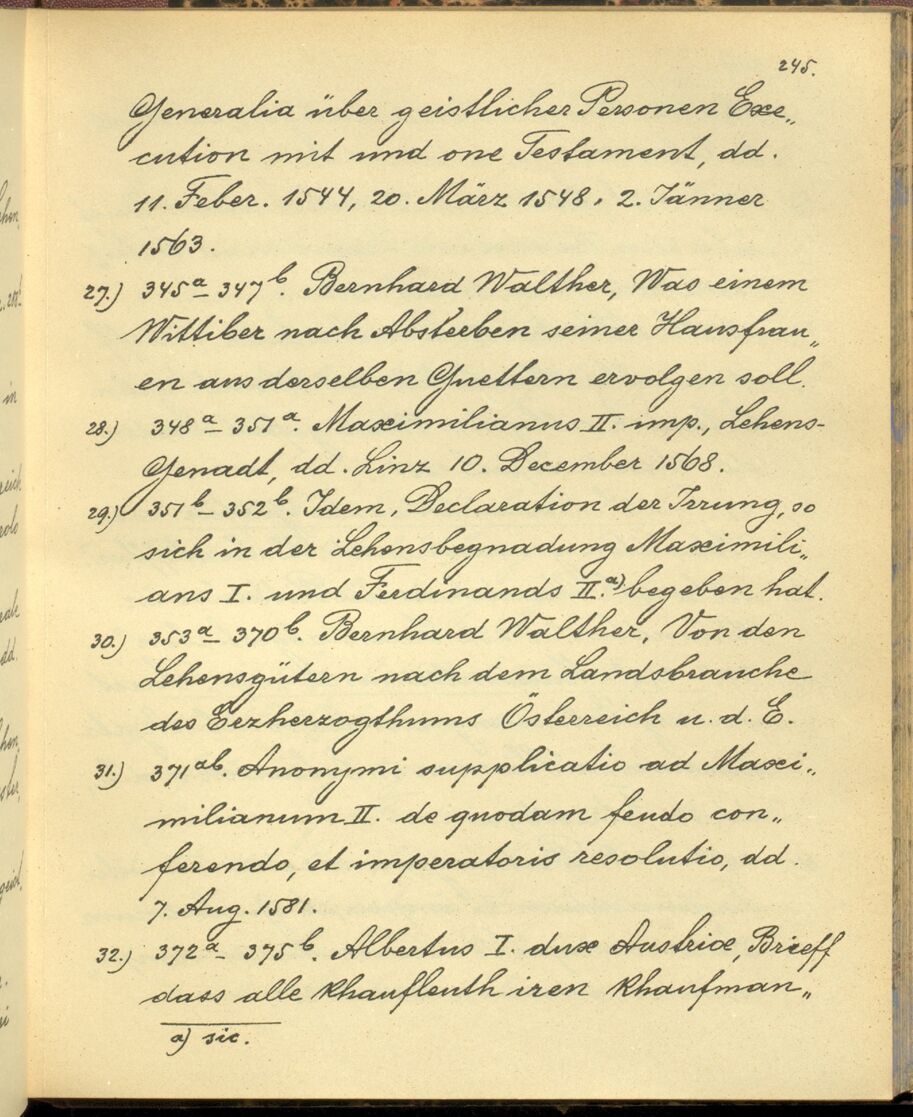 245.
Generalia über geistlicher Personen Exe„
cution mit und one Testament, dd.
11. Feber. 1544, 20. März 1548, 2. Jänner
1563.
27.) 345a – 347b. Bernhard Walther, Was einem
Wittiber nach Absterben seiner Hausfrau„
en aus derselben Guettern ervolgen soll.
28.) 348a – 351a. Maximilianus II. imp., Lehens-
Genadt, dd. Linz 10. December 1568.
29.) 351b – 352b. Idem, Declaration der Irrung, so
sich in der Lehensbegnadung Maximili„
ans I. und Ferdinands II.a) begeben hat.
30.) 353a – 370b. Bernhard Walther, Von den
Lehensgütern nach dem Landsbrauche
des Erzherzogthums Österreich u. d. E.
31.) 371ab. Anonymi supplicatio ad Maxi„
milianum II. de quodam feudo con„
ferendo, et imperatoris resolutio, dd.
7. Aug. 1581.
32.) 372a – 375b. Albertus I. dux Austriæ, Brieff
dass alle khaufleuth iren khaufman„
a) sic.